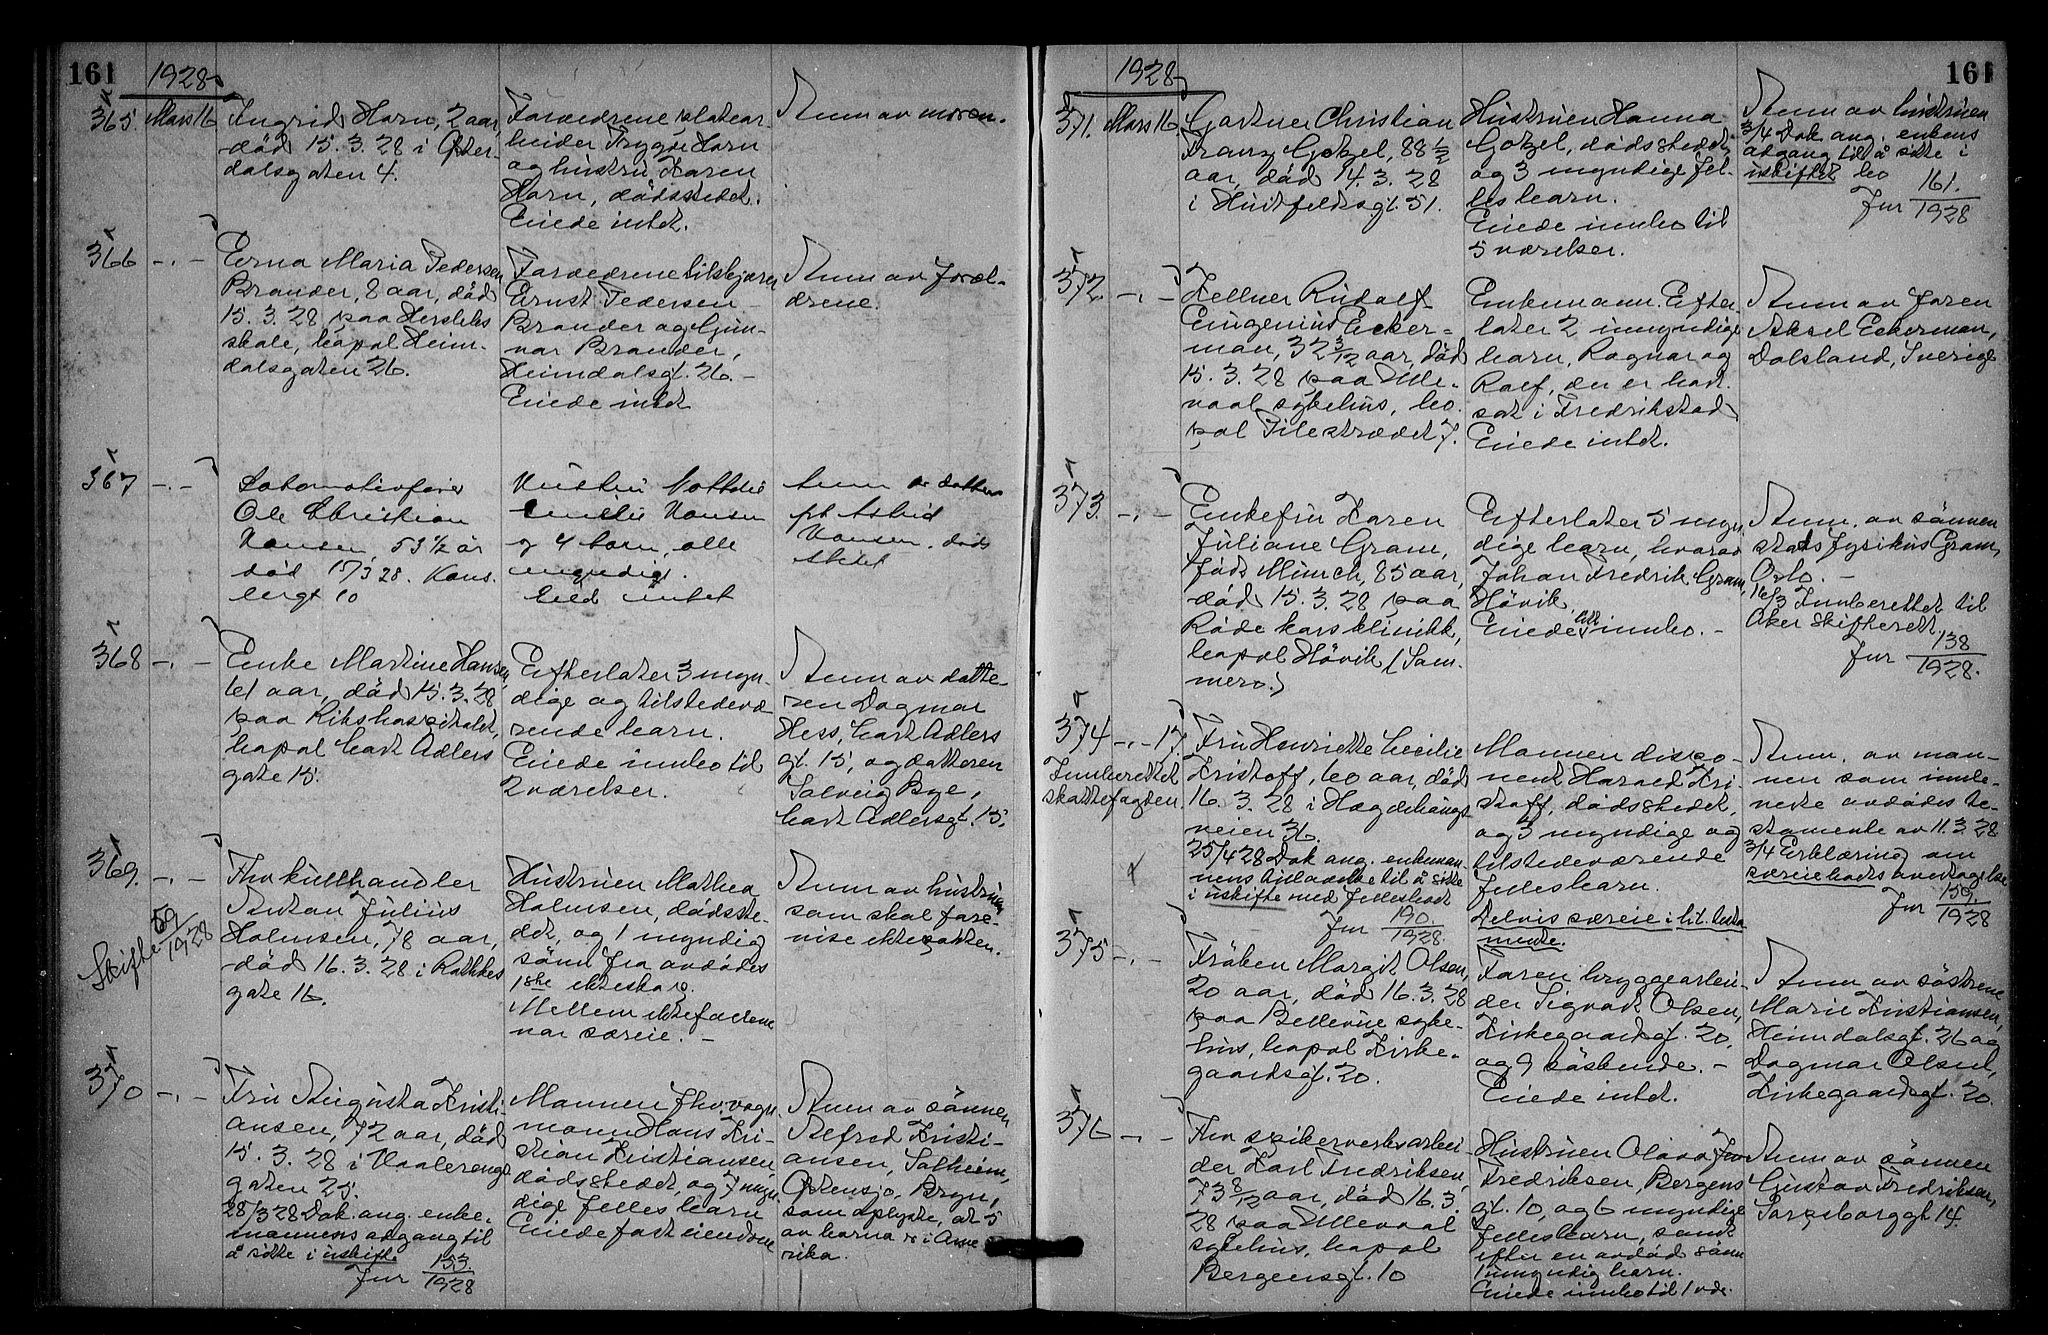 161
1928
365. Mars 16
Ingrid Horn, 2 aar,
død 15.3.28 i Øster-
dalsgaten 4.
Forældrene platear-
beider Trygve Horn
og hustru Karen
Horn, dødsstedet.
Eiede intet.
Anm av moren.
366 -.-
Erna Maria Pedersen
Brander, 8 aar, død
15.3.28 paa Herslebs
skole, bopæl Heim-
dalsgaten 26.
Forældrene
Ernst Pedersen
Brander og Gun-
nar Brander,
Heimdalsgt. 26. -
Eiede intet
Anm av foræl-
drene.
367 -.-
Lokomotivfører
Ole Christian
Hansen, 53 1/2 år
død 15/3 28.
10
Hustru
Emilie Hansen
og 4 barn, alle
myndige.
Eied intet
Anm av datter
frk Astrid
Hansen. døds
stedet
368 -.-
Enke Martine Hansen,
61 aar, død 15.3.28
paa Rikshospitalet,
bopæl Cort Adlers
gate 15.
Efterlater 3 myn
dige og tilstedevæ
rende barn.
Eiede innbo til
2 værelser.
Anm av datte-
ren Dagmar
Hess, Cort Adlers
gt. 15, og datteren
Solveig Bye,
Cort Adlersgt. 15.
369. -.-
Skifte 59/1928
Fhv kullhandler
Anton Julius
Holmsen, 78 aar,
død 16.3.28 i Rathkes
gate 16.
Hustruen Mathea
Holmsen, dødsste-
det, og 1 myndig
sønn fra avdødes
1ste ekteskap.
Mellem ektefællene
var særeie. -
Anm av hustruen
som skal fore-
vise ektepakten.
370 -.-
Fru Augusta Kristi-
ansen, 72 aar, død
15.3.28 i Vaalerengt
gaten 25.
28/3 28 Dok. ang. enke-
mannens adgang til
å sitte i uskifte
Jnr 153/1928
Mannen fhv. vogn
mann Hans Kri-
stian Kristiansen,
dødsstedet, og 7 myn
dige fellesbarn
Eiede fast eiendom
Anm av sønnen
Alfred Kristi-
ansen, Solheim,
Østensjø, Bryn,
som oplyste, at 5
av barna er i Ame
rika.
1928
161
371. Mars 16
Gartner Christian
Franz Gokel, 88 1/2
aar, død 14.3.28
i Huitfeldtsgt. 51.
Hustruen Hanna
Gokel, dødsstedet
og 3 myndige fel-
lesbarn.
Eiede innbo til
5 værelser.
Anm av hustruen
3/4 Dok ang. enkens
adgang til å sitte i
uskiftet bo
Jnr 161./1928
372. -.-
Kellner Rudolf
Eugenius Ecker-
man, 32 3/12 aar, død
15.3.28 paa Ulle-
vaal sykehus, bo
pæl Pilestrædet 7.
Enkemann. Efter-
later 2 umyndige
barn, Ragnar og
Rolf, der er bort
sat i Fredrikstad
Eiede intet.
Anm av faren
Aksel Eckerman,
Dalsland, Sverige
373. -.-
Enkefru Karen
Juliane Gram,
født Münch, 85 aar,
død 15.3.28 paa
Røde kors klinikk,
bopæl Høvik, (Som-
mero.)
Efterlater 5 myn
dige barn, hvorav
Johan Fredrik Gram,
Høvik.
Eiede litt innbo. -
Anm. av sønnen
stadsfysikus Gram,
Oslo. -
16/3 Innberettet til
Aker skifterett,
Jnr 138/1928.
374 -.- 17.
Innberettet
skattefogden.
Fru Henriette Cecilie
Kristoff, 60 aar, død
16.3.28 i Hægdehaugs
veien 36.
25/4 28 Dok ang. enkeman
nens tilladelse til å sitte
i uskifte med fellesbarn
Jnr 190./1928.
Mannen dispo-
nent Harald Kri-
stoff, dødsstedet,
og 3 myndige og
tilstedeværende
fellesbarn.
Delvis særeie i h.t. testa
mente.
Anm. av man-
nen som inle-
verte avdødes te-
stamente av 11.3.28
3/4 Erklæring om
særeiebos overtagelse
Jnr 159./1928
375 -.-
Frøken Margit Olsen,
20 aar, død 16.3.28
paa Bellevue syke-
hus, bopæl Kirke-
gaardsgt. 20.
Faren bryggearbei-
der Sigvart Olsen,
Kirkegaardsgt. 20,
og 9 søskende. -
Eiede intet.
Anm av søstrene
Marie Kristiansen,
Heimdalsgt. 26 og
Dagmar Olsen,
Kirkegaardsgt. 20.
376 -.-
Fhv spikerverksarbei-
der Karl Fredriksen,
73 8/12 aar, død 16.3.
28 paa Ullevaal
sykehus, bopæl
Bergensgt. 10
Hustruen Olava
Fredriksen, Bergens
gt. 10, og 6 myndige
fellesbarn, samt
efter en avdød sønn
1 umyndig barn.
Eiede innbo til 1 vær.
Anm av sønnen
Gustav Fredriksen,
Sarpsborggt 14.